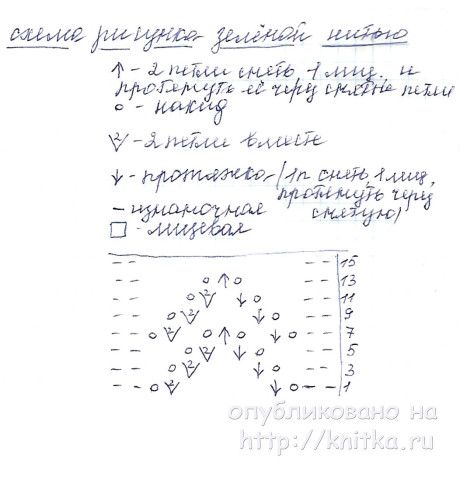 схема рисунка зелёной нитью
↑ - 2 петли снять, 1 лиц., и
протянуть её через снятые петли
о - накид
2 - 2 петли вместе
↓ - протяжка (1 п снять, 1 лиц,
протянуть через
снятую)
– - изнаночная
□ - лицевая
– – – – 15
– – о ↑ о – – 13
– – о 2 ↓ о – – 11
– – о 2 ↓ о – – 9
– – о 2 о ↑ о ↓ о – – 7
– – о 2 ↓ о – – 5
– – о 2 ↓ о – – 3
– – о 2 ↓ о – – 1
опубликовано на
http://knitka.ru